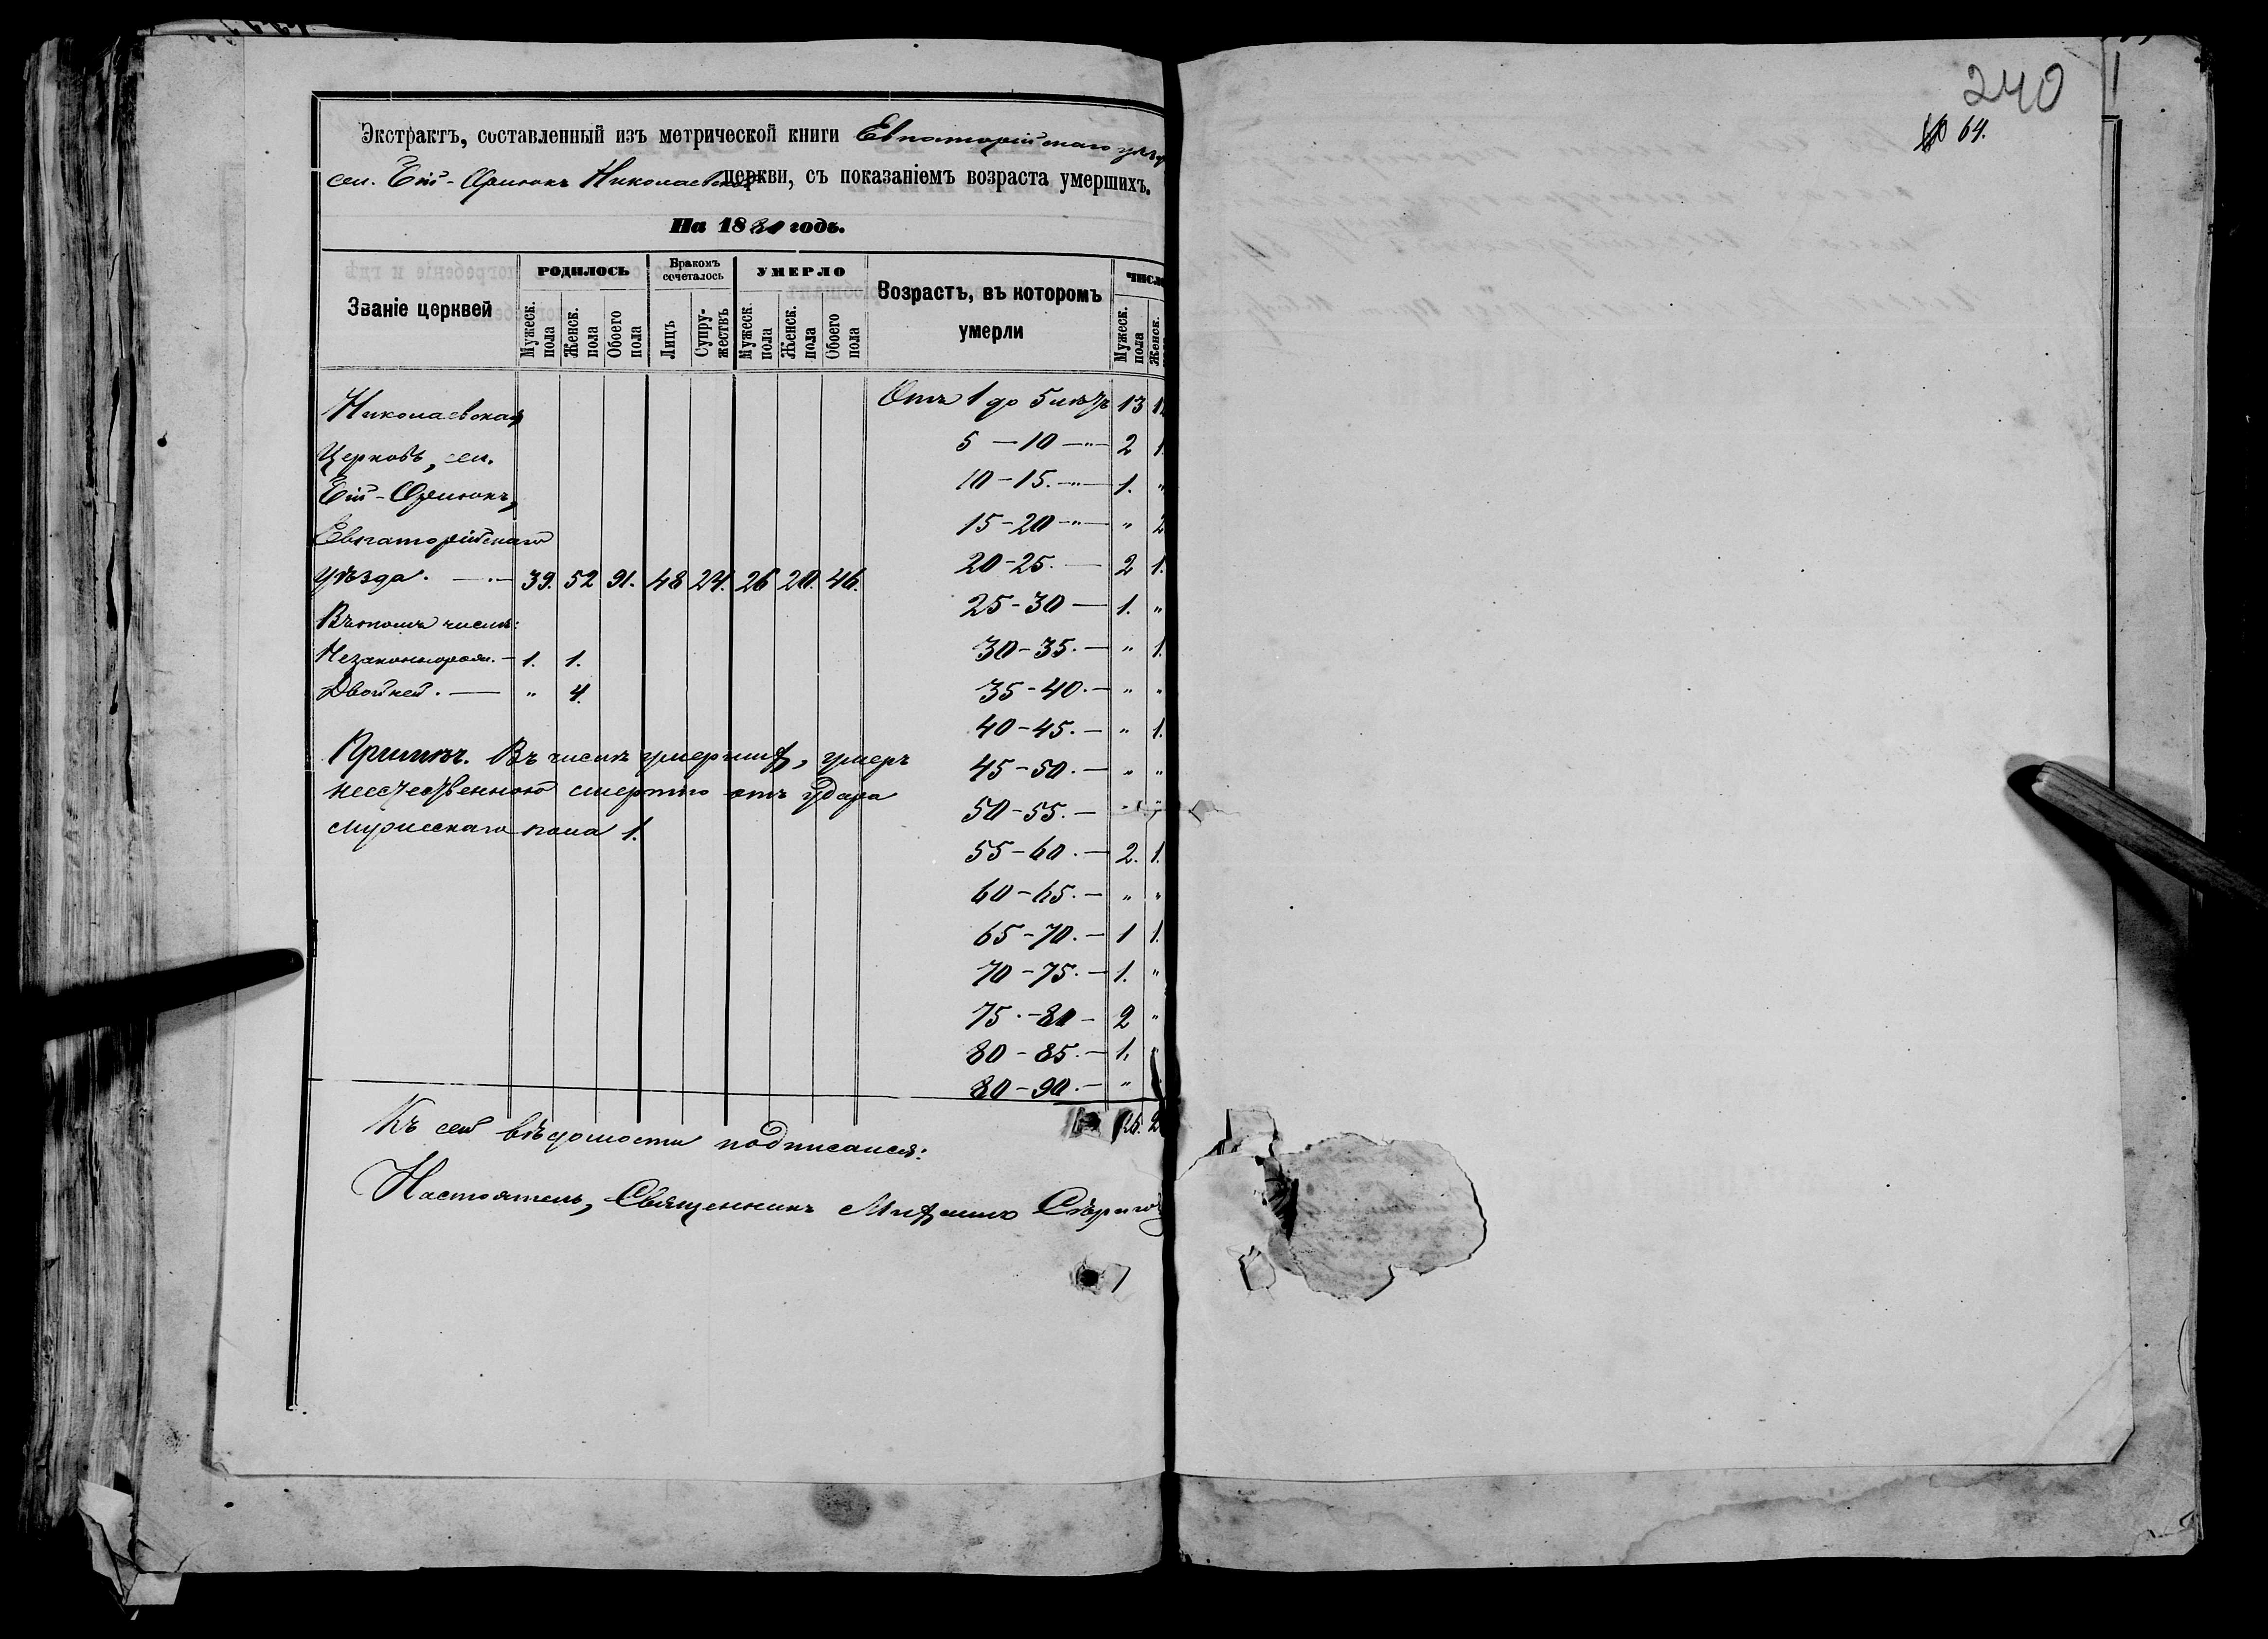 240
64.
Экстрактъ, составленный изъ метрической книги Евпаторійскаго
сел. Николаевской церкви, съ показаніемъ возраста умершихъ.
На 18 годъ.
Званіе церквей
РОДИЛОСЬ
Мужеск. пола
Женск. пола
Обоего пола
Бракомъ сочеталось
Лицъ
Супружествъ
УМЕРЛО
Мужеск. пола
Женск. пола
Обоего пола
Возрастъ, въ которомъ
умерли
Мужеск. пола
Женск.
Николаевская
Церковь, сел.
Евпаторійскаго
уѣзда. — 39. 52 91. 48 24. 26 20. 46.
Въ томъ числѣ:
Незаконнорож. — 1. 1.
Двойней. — " 4.
Примѣч. Въ числѣ умершихъ, умеръ
неестественною смертію отъ удара
мужескаго пола 1.
Отъ 1 до 5 лѣтъ 13
5 — 10 —"— 2 1.
10 - 15. —"— 1. "
15 - 20 —"— " 2
20 - 25. — 2 1.
25 - 30 — 1. "
30 - 35. — " 1.
35 - 40. — " "
40 - 45. — " 1.
45 - 50. — " "
50 - 55. —
55 - 60. — 2. 1.
60 - 65. — " "
65 - 70. — 1 1.
70 - 75. — 1. "
75. - 80 - 2 "
80 - 85. — 1. "
80 - 90. — "
26. 2
Къ сей вѣдомости подписался:
Настоятель, Священникъ